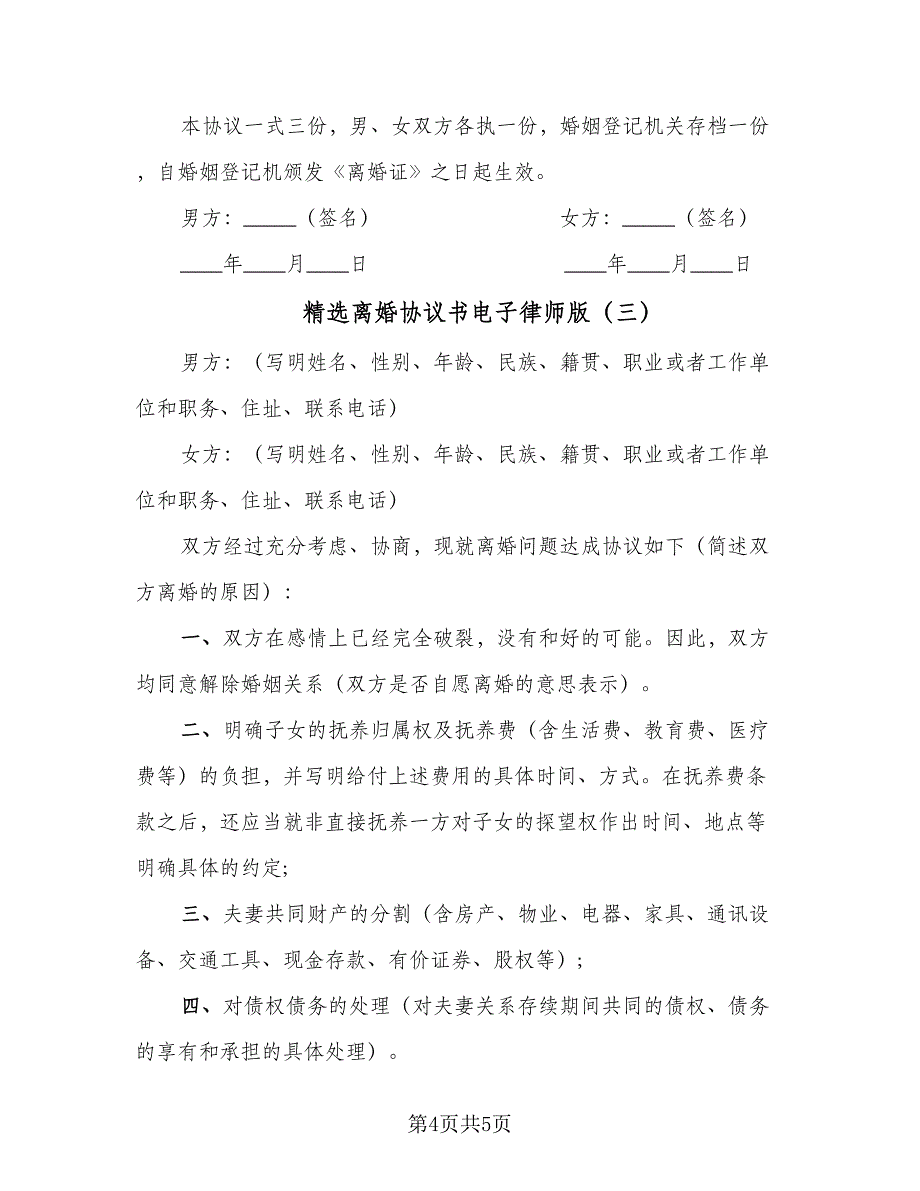 本协议一式三份，男、女双方各执一份，婚姻登记机关存档一份
，自婚姻登记机颁发《离婚证》之日起生效。
男方：_____（签名） 女方：_____（签名）
____年____月____日 ____年____月____日
精选离婚协议书电子律师版（三）
男方：（写明姓名、性别、年龄、民族、籍贯、职业或者工作单
位和职务、住址、联系电话）
女方：（写明姓名、性别、年龄、民族、籍贯、职业或者工作单
位和职务、住址、联系电话）
双方经过充分考虑、协商，现就离婚问题达成协议如下（简述双
方离婚的原因）：
一、双方在感情上已经完全破裂，没有和好的可能。因此，双方
均同意解除婚姻关系（双方是否自愿离婚的意思表示）。
二、明确子女的抚养归属权及抚养费（含生活费、教育费、医疗
费等）的负担，并写明给付上述费用的具体时间、方式。在抚养费条
款之后，还应当就非直接抚养一方对子女的探望权作出时间、地点等
明确具体的约定;
三、夫妻共同财产的分割（含房产、物业、电器、家具、通讯设
备、交通工具、现金存款、有价证券、股权等）;
四、对债权债务的处理（对夫妻关系存续期间共同的债权、债务
的享有和承担的具体处理）。
第4页共5页